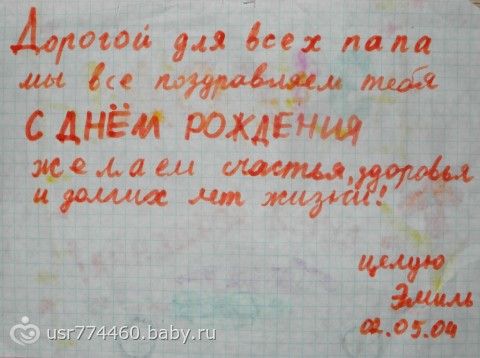 Дорогой для всех папа
мы все поздравляем тебя
С ДНЁМ РОЖДЕНИЯ
желаем счастья, здоровья
и долгих лет жизни!
целую
Эмиль
02.05.04
usr774460.baby.ru